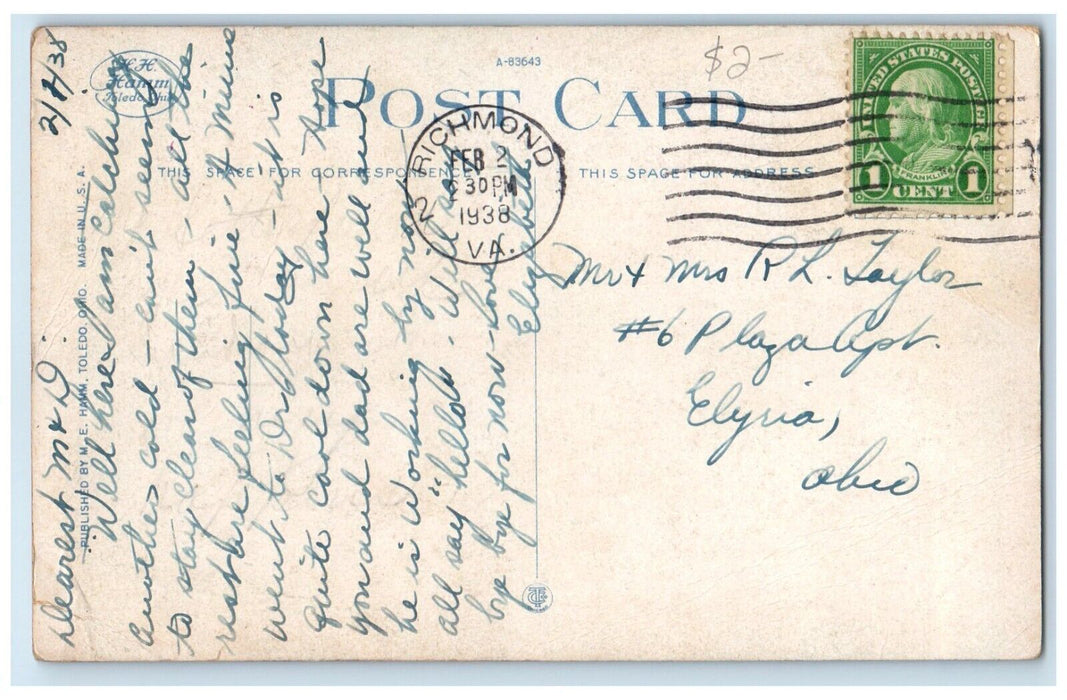 2/2/38
Dearest M & D.
Well here I am catching
another cold - can't seem
to stay clear of them - all the
rest are feeling fine - & Mine
went to Dr today - it is
quite cool down here - hope
you and dad are well and
he is working by now
all say "hello". Will say
bye bye for now - Love
Elizabeth
H. H.
Hamm
Toledo, Ohio
PUBLISHED BY M. E. HAMM, TOLEDO, OHIO. MADE IN U. S. A.
A-83643
$2-
POST CARD
THIS SPACE FOR CORRESPONDENCE
THIS SPACE FOR ADDRESS
RICHMOND
FEB 2
2 30 PM
1938
VA.
2
UNITED STATES POSTAGE
FRANKLIN
1 CENT 1
Mr & Mrs R L. Taylor
#6 Plaza Apt.
Elyria,
Ohio